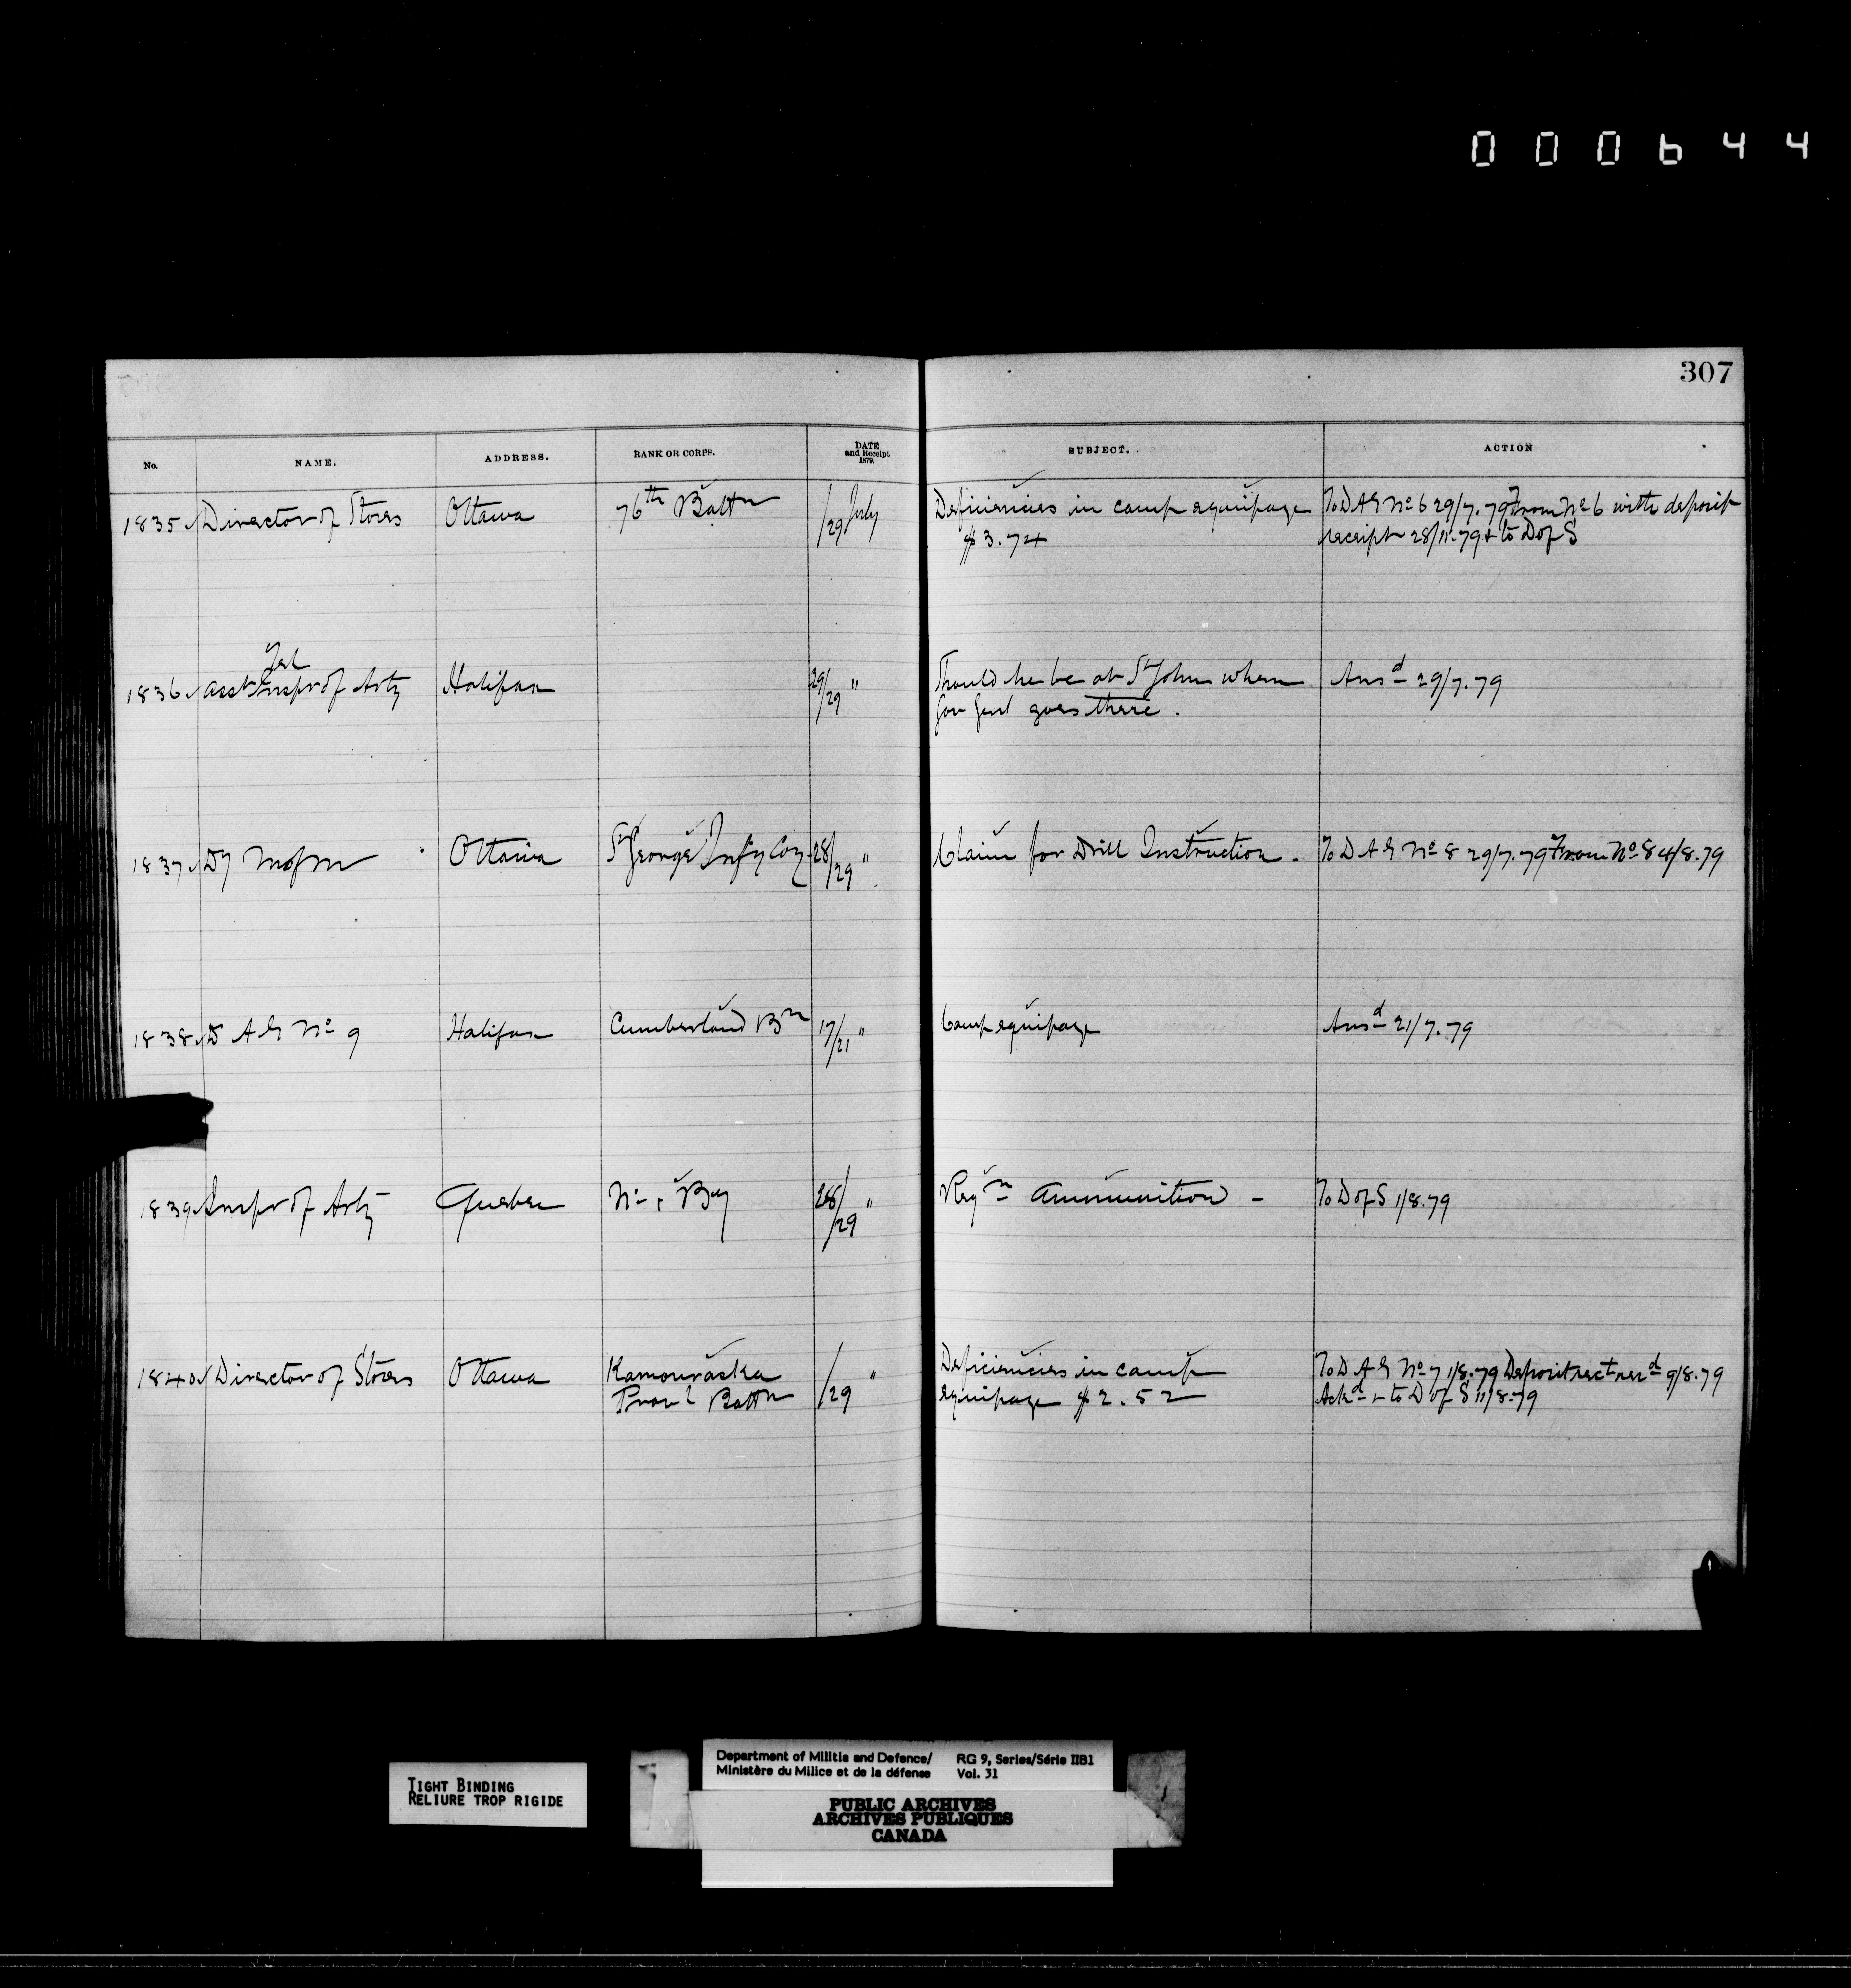 000644
307
No. NAME. ADDRESS. RANK OR CORPS. DATE and Receipt 1879. SUBJECT. ACTION
1835 Director of Stores Ottawa 76th Battn /29 July Deficiencies in camp equipage To D A G No 6 29/7.79 From No 6 with deposit
$3.74 receipt 28/11.79 + to D of S
Tel
1836 Asst Inspr of Arty Halifax 29/29 " Should he be at St John when Ansd 29/7.79
Gov Genl goes there.
1837 Dy M of M Ottawa St George Infy Coy 28/29 " Claim for Drill Instruction. To D A G No 8 29/7.79 From No 8 4/8.79
1838 D A G No 9 Halifax Cumberland Bn 17/21 " Camp equipage Ansd 21/7.79
1839 Inspr of Arty Quebec No 1 By 28/29 " Reqn Ammunition - To D of S 1/8.79
1840 Director of Stores Ottawa Kamouraska /29 " Deficiencies in camp To D A G No 7 1/8.79 Deposit rect recd 9/8.79
Provl Battn equipage $2.52 Ackd + to D of S 11/8.79
TIGHT BINDING
RELIURE TROP RIGIDE
Department of Militia and Defence/ RG 9, Series/Série IIB1
Ministère du Milice et de la défense Vol. 31
PUBLIC ARCHIVES
ARCHIVES PUBLIQUES
CANADA